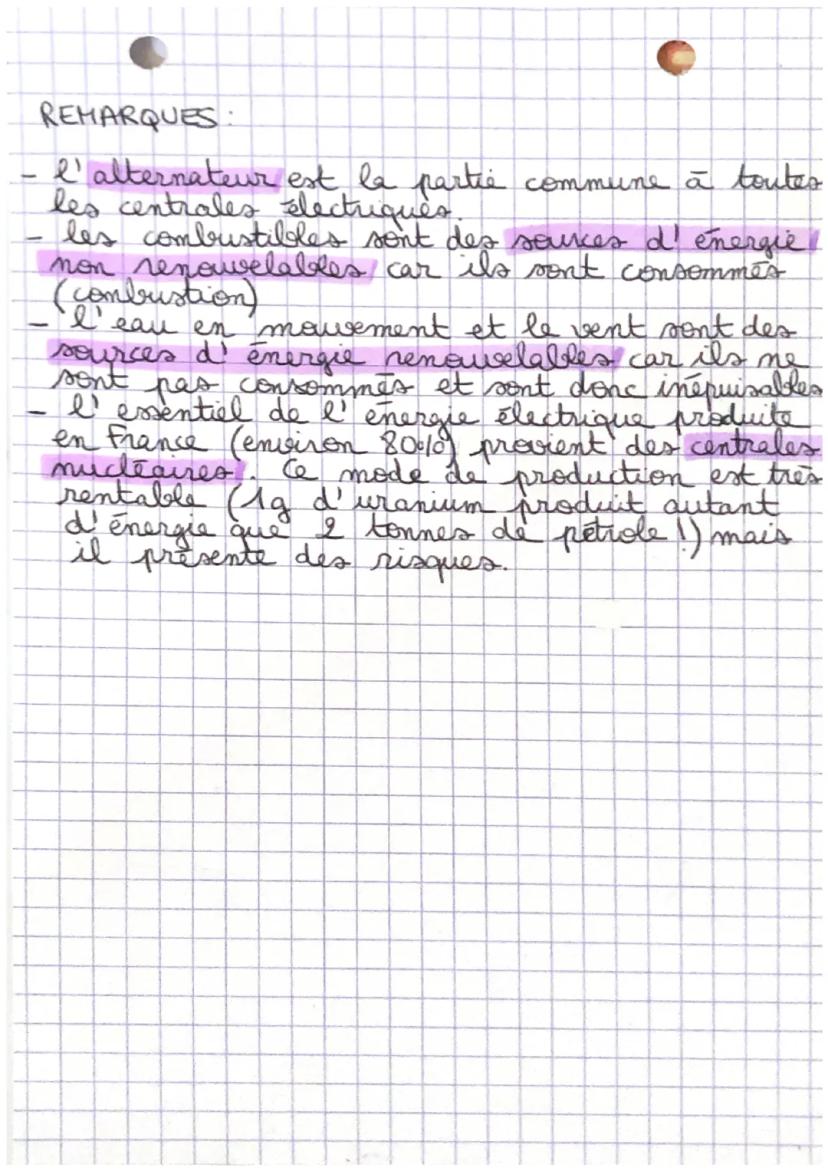 REMARQUES:
- l'alternateur est la partie commune à toutes
les centrales électriques.
- les combustibles sont des sources d'énergie
non renouvelables car ils sont consommés
(combustion)
- l'eau en mouvement et le vent sont des
sources d'énergie renouvelables car ils ne
sont pas consommés et sont donc inépuisables
- l'essentiel de l'énergie électrique produite
en France (environ 80%) provient des centrales
nucléaires. Ce mode de production est très
rentable (1g d'uranium produit autant
d'énergie que 2 tonnes de pétrole!) mais
il présente des risques.